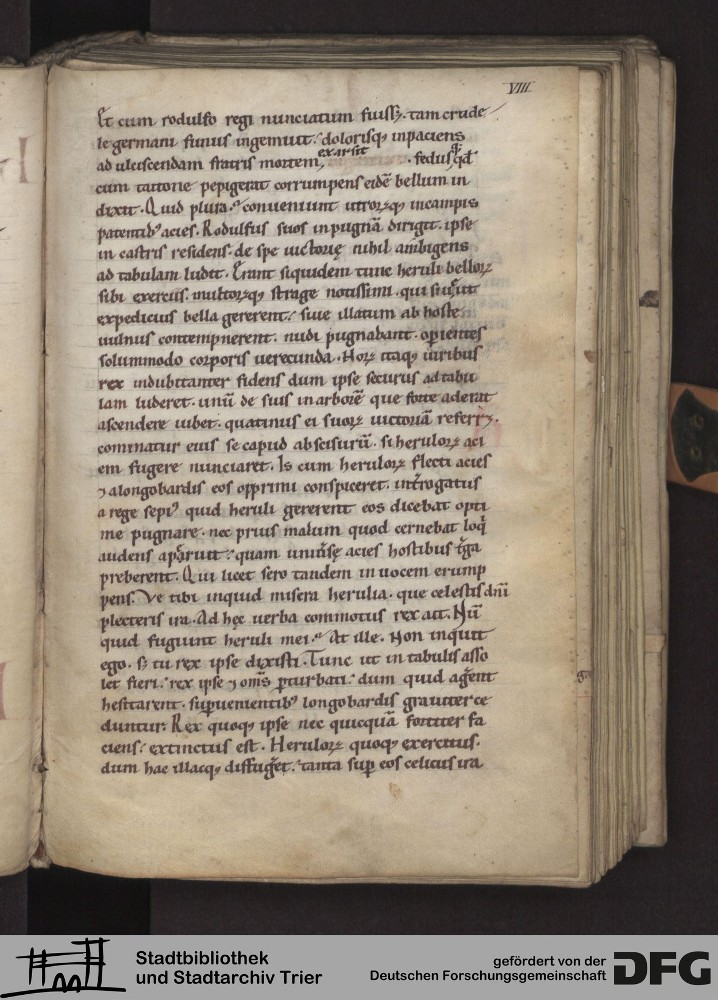 VIIII
Et cum rodulfo regi nunciatum fuiss&. tam crude
le germani funus ingemuit. dolorisq; inpaciens
ad ulciscendam fratris mortem, exarsit. fedusq; qđ
cum tattone pepigerat corrumpens eidē bellum in
dixit. Quid plura? conueniunt utrorꝝq; in campis
patentib; acies. Rodulfus suos in pugnā dirigit. ipse
in castris residens. de spe uictorię nihil ambigens
ad tabulam ludit. Erant siquidem tunc heruli bellorꝝ
sibi exerciis. multorꝝq; strage notissimi. qui siue ut
expedicius bella gererent. siue illatum ab hoste
uulnus contempnerent. nudi pugnabant. operientes
solummodo corporis uerecunda. Horꝝ itaq; uiribus
rex indubitanter fidens dum ipse securus ad tabu
lam luderet. unū de suis in arborē que forte aderat
ascendere iubet. quatinus ei suorꝝ uictoriā referr&.
comminatur eius se capud abscisurū. si herulorꝝ aci
em fugere nunciaret. Is cum herulorꝝ flecti acies
⁊ a longobardis eos opprimi conspiceret. int̄rogatus
a rege sepi⁹ quid heruli gererent eos dicebat opti
me pugnare. nec prius malum quod cernebat loq̇
audens aparuit. quam uniuersę acies hostibus t̄ga
preberent. Qui licet sero tandem in uocem erump
pens. Ve tibi inquid misera herulia. que celestis dn̄i
plecteris ira. Ad hęc uerba commotus rex ait. Nū
quid fugiunt heruli mei? At ille. Non inquit
ego. s; tu rex ipse dixisti. Tunc ut in tabulis asso
let fieri. rex ipse ⁊ om̄s p̄turbati. dum quid agerent
hesitarent. superuenientib; longobardis grauiter ce
duntur. Rex quoq; ipse nec quicquā fortiter fa
ciens. extinctus est. Herulorꝝ quoq; exercitus.
dum hac illacq; diffuger&. tanta sup̄ eos celitus ira
Stadtbibliothek
und Stadtarchiv Trier
gefördert von der
Deutschen Forschungsgemeinschaft
DFG